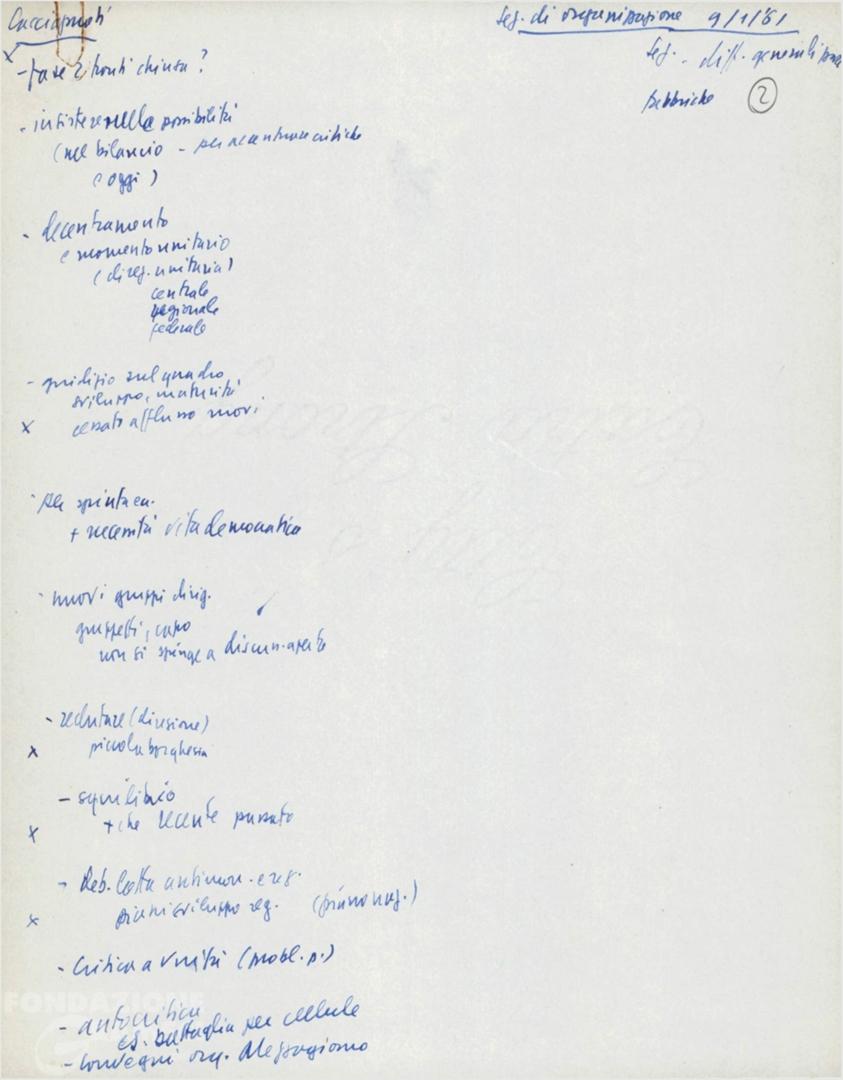 Cacciapuoti
Seg. di organizzazione 9/1/61
Seg. - diff. generali
fabbriche 2
- fase 2 fronti chiusa?
- insistere nelle possibilità
(nel bilancio - per accentuare critiche
(oggi)
- decentramento
e momento unitario
(direz. unitaria)
centrale
regionale
federale
- giudizio sul quadro
sviluppo, maturità
x cessato afflusso nuovi
- per spinta
+ necessità vita democratica
- nuovi gruppi dirig.
gruppetti, capo
non si spinge a
- reclutare (direzione)
x piccola borghesia
- squilibrio
x + che recente passato
- deb. lotta antimon.
x piani sviluppo reg. (piano reg.)
- Critica a Unità (probl. p.)
- autocritica
es. battaglia per cellule
- Convegni org. Mezzogiorno
FONDAZIONE